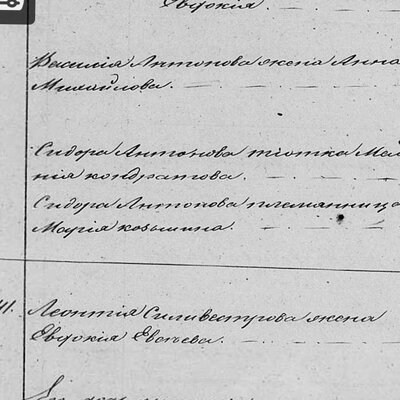 Евдокія.
Василія Антонова жена Анна
Михайлова.
Сидора Антонова тіотка Мела
нія кондратова.
Сидора Антонова племянница
Марія козьмина.
Леонтія Силивестрова жена
Евдокія Евсѣева.